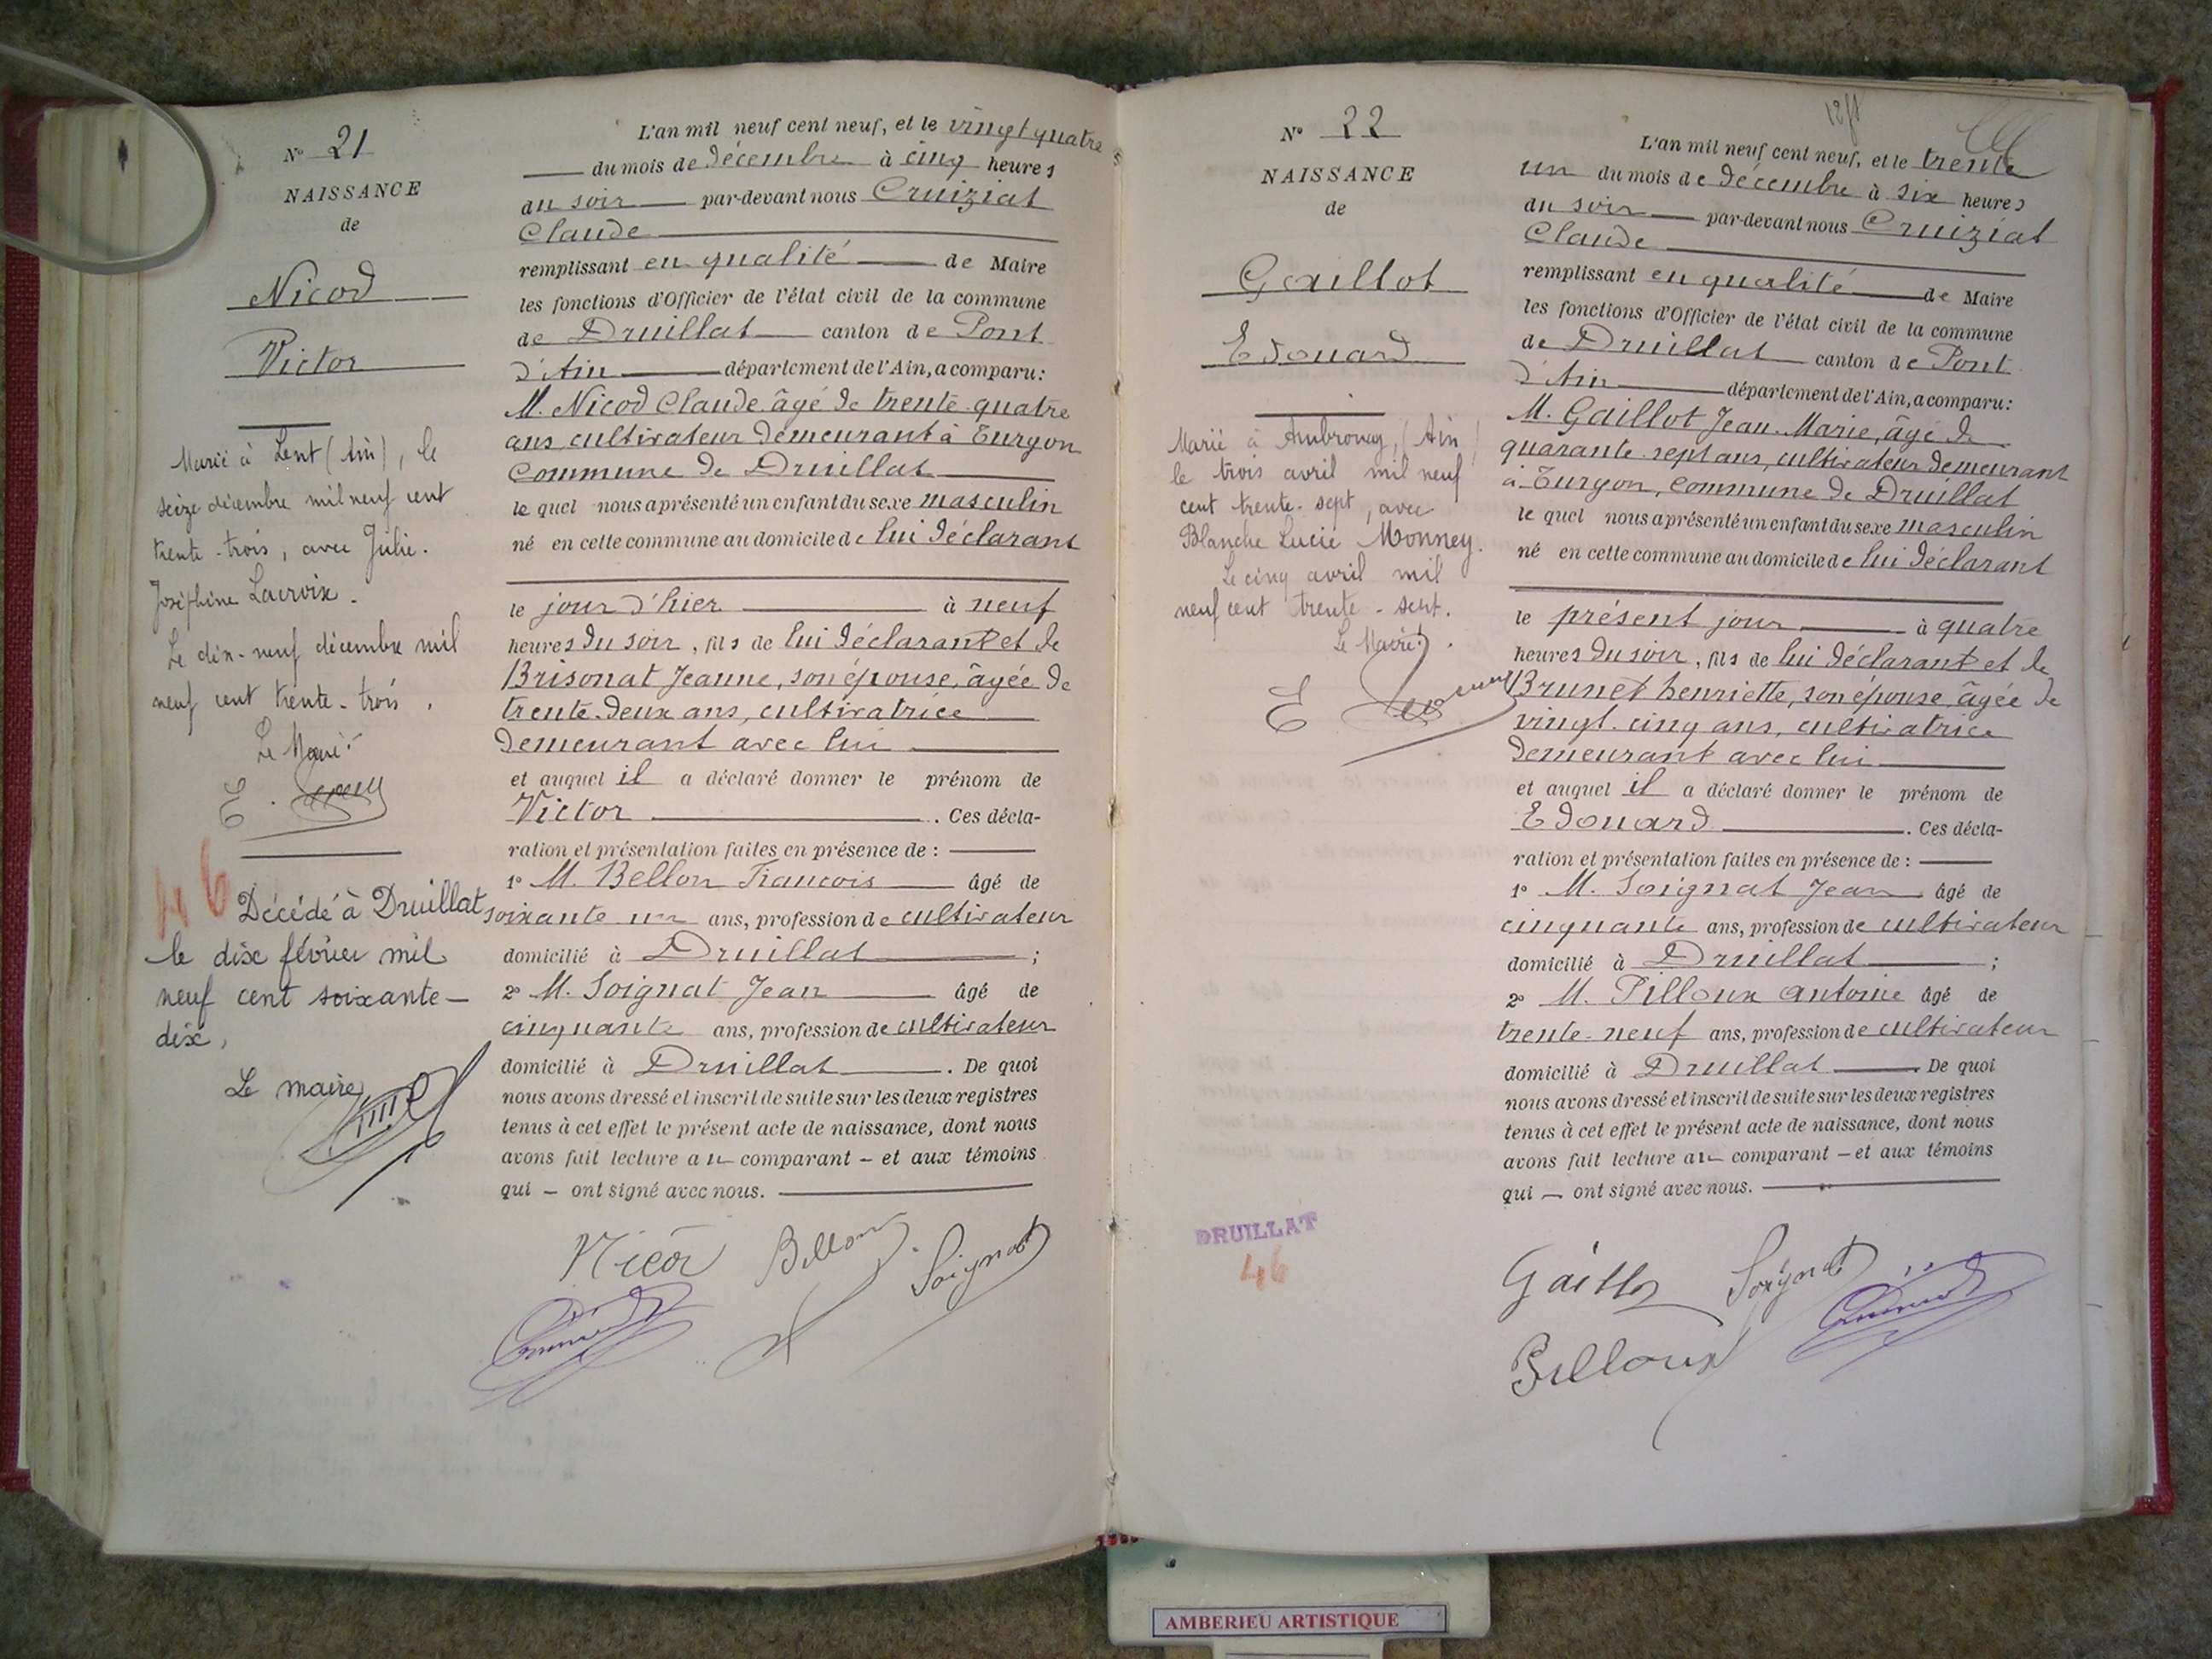 N° 21
NAISSANCE
de
Nicod
Victor
Marié à Lent (Ain), le
seize décembre mil neuf cent
trente-trois, avec Julie-
Joséphine Lacroix.
Le dix-neuf décembre mil
neuf cent trente-trois.
Le Maire:
E.
46
Décédé à Druillat
le dix février mil
neuf cent soixante-
dix,
Le maire
L'an mil neuf cent neuf, et le vingt quatre
du mois de décembre à cinq heures
du soir par-devant nous Cruiziat
Claude
remplissant en qualité de Maire
les fonctions d'Officier de l'état civil de la commune
de Druillat canton de Pont
d'Ain département de l'Ain, a comparu:
M. Nicod Claude âgé de trente-quatre
ans, cultivateur demeurant à Turgon
Commune de Druillat
le quel nous a présenté un enfant du sexe masculin
né en cette commune au domicile de lui déclarant
le jour d'hier à neuf
heures du soir, fils de lui déclarant et de
Brisonat Jeanne, son épouse, âgée de
trente-deux ans, cultivatrice
demeurant avec lui
et auquel il a déclaré donner le prénom de
Victor . Ces décla-
ration et présentation faites en présence de :
1° M. Bellon Francois âgé de
soixante un ans, profession de cultivateur
domicilié à Druillat ;
2° M. Soignat Jean âgé de
cinquante ans, profession de cultivateur
domicilié à Druillat . De quoi
nous avons dressé et inscrit de suite sur les deux registres
tenus à cet effet le présent acte de naissance, dont nous
avons fait lecture au comparant - et aux témoins
qui - ont signé avec nous.
Nicod Bellon Soignat
N° 22
NAISSANCE
de
Gaillot
Edouard
Marié à Ambronay, (Ain)
le trois avril mil neuf
cent trente-sept, avec
Blanche Lucie Monney.
Le cinq avril mil
neuf cent trente-sept.
Le Maire:
E
DRUILLAT
46
L'an mil neuf cent neuf, et le trente
un du mois de décembre à six heures
du soir par-devant nous Cruiziat
Claude
remplissant en qualité de Maire
les fonctions d'Officier de l'état civil de la commune
de Druillat canton de Pont
d'Ain département de l'Ain, a comparu:
M. Gaillot Jean-Marie, âgé de
quarante-sept ans, cultivateur demeurant
à Turgon, Commune de Druillat
le quel nous a présenté un enfant du sexe masculin
né en cette commune au domicile de lui déclarant
le présent jour à quatre
heures du soir, fils de lui déclarant et de
Brunet henriette, son épouse, âgée de
vingt-cinq ans, cultivatrice
demeurant avec lui
et auquel il a déclaré donner le prénom de
Edouard . Ces décla-
ration et présentation faites en présence de :
1° M. Soignat Jean âgé de
cinquante ans, profession de cultivateur
domicilié à Druillat ;
2° M. Pilloux antoine âgé de
trente-neuf ans, profession de cultivateur
domicilié à Druillat . De quoi
nous avons dressé et inscrit de suite sur les deux registres
tenus à cet effet le présent acte de naissance, dont nous
avons fait lecture au comparant - et aux témoins
qui - ont signé avec nous.
Gaillot Soignat
Pilloux
AMBERIEU ARTISTIQUE